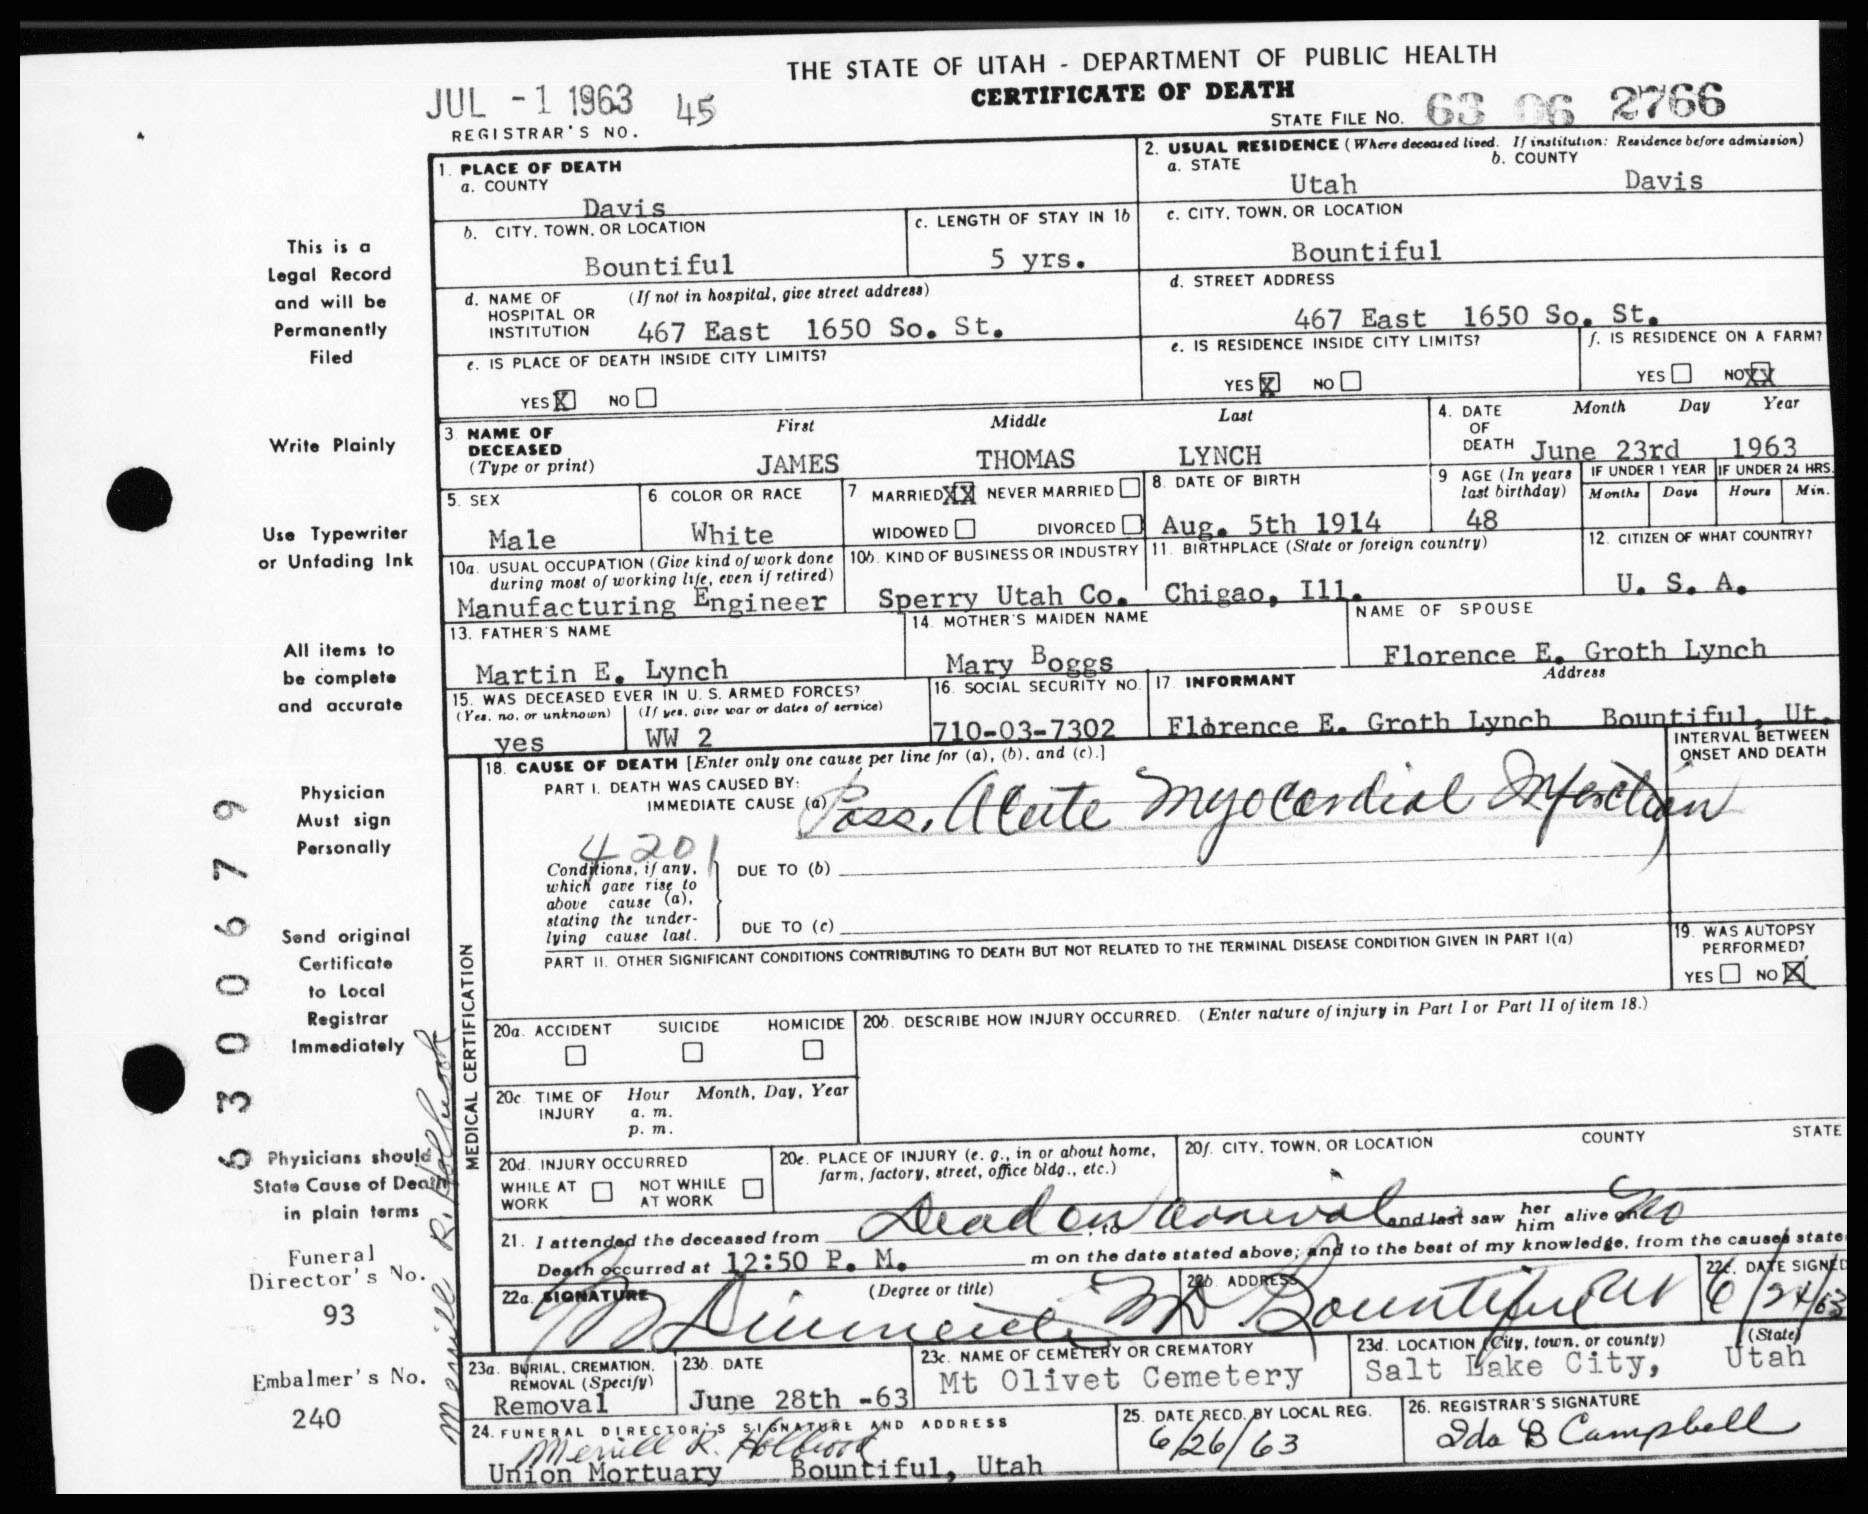 THE STATE OF UTAH - DEPARTMENT OF PUBLIC HEALTH
CERTIFICATE OF DEATH
JUL -1 1963 45
REGISTRAR'S NO.
STATE FILE NO. 63 06 2766
1. PLACE OF DEATH
a. COUNTY
Davis
2. USUAL RESIDENCE (Where deceased lived. If institution: Residence before admission)
a. STATE b. COUNTY
Utah Davis
b. CITY, TOWN, OR LOCATION
Bountiful
c. LENGTH OF STAY IN 1b
5 yrs.
c. CITY, TOWN, OR LOCATION
Bountiful
d. NAME OF HOSPITAL OR INSTITUTION (If not in hospital, give street address)
467 East 1650 So. St.
d. STREET ADDRESS
467 East 1650 So. St.
e. IS PLACE OF DEATH INSIDE CITY LIMITS?
YES X NO
e. IS RESIDENCE INSIDE CITY LIMITS?
YES X NO
f. IS RESIDENCE ON A FARM?
YES NO XX
3. NAME OF DECEASED (Type or print)
First Middle Last
JAMES THOMAS LYNCH
4. DATE OF DEATH
Month Day Year
June 23rd 1963
5. SEX
Male
6. COLOR OR RACE
White
7 MARRIED XX NEVER MARRIED
WIDOWED DIVORCED
8. DATE OF BIRTH
Aug. 5th 1914
9 AGE (In years last birthday)
48
IF UNDER 1 YEAR IF UNDER 24 HRS.
Months Days Hours Min.
10a. USUAL OCCUPATION (Give kind of work done during most of working life, even if retired)
Manufacturing Engineer
10b. KIND OF BUSINESS OR INDUSTRY
Sperry Utah Co.
11. BIRTHPLACE (State or foreign country)
Chigao, Ill.
12. CITIZEN OF WHAT COUNTRY?
U. S. A.
13. FATHER'S NAME
Martin E. Lynch
14. MOTHER'S MAIDEN NAME
Mary Boggs
NAME OF SPOUSE
Florence E. Groth Lynch
15. WAS DECEASED EVER IN U. S. ARMED FORCES?
(Yes, no, or unknown) (If yes, give war or dates of service)
yes WW 2
16. SOCIAL SECURITY NO.
710-03-7302
17. INFORMANT Address
Florence E. Groth Lynch Bountiful, Ut.
18. CAUSE OF DEATH [Enter only one cause per line for (a), (b), and (c).]
INTERVAL BETWEEN ONSET AND DEATH
PART I. DEATH WAS CAUSED BY:
IMMEDIATE CAUSE (a) Poss. Acute Myocardial Infarction
4201
Conditions, if any, which gave rise to above cause (a), stating the underlying cause last.
DUE TO (b)
DUE TO (c)
PART II. OTHER SIGNIFICANT CONDITIONS CONTRIBUTING TO DEATH BUT NOT RELATED TO THE TERMINAL DISEASE CONDITION GIVEN IN PART I(a)
19. WAS AUTOPSY PERFORMED?
YES NO X
MEDICAL CERTIFICATION
20a. ACCIDENT SUICIDE HOMICIDE
20b. DESCRIBE HOW INJURY OCCURRED. (Enter nature of injury in Part I or Part II of item 18.)
20c. TIME OF INJURY Hour Month, Day, Year
a. m.
p. m.
20d. INJURY OCCURRED
WHILE AT WORK NOT WHILE AT WORK
20e. PLACE OF INJURY (e. g., in or about home, farm, factory, street, office bldg., etc.)
20f. CITY, TOWN, OR LOCATION COUNTY STATE
21. I attended the deceased from Dead on arrival to and last saw her him alive on no
Death occurred at 12:50 P. M. m on the date stated above; and to the best of my knowledge, from the causes state
22a. SIGNATURE (Degree or title)
MD
22b. ADDRESS
Bountiful Ut
22c. DATE SIGNED
6/24/63
23a. BURIAL, CREMATION, REMOVAL (Specify)
Removal
23b. DATE
June 28th -63
23c. NAME OF CEMETERY OR CREMATORY
Mt Olivet Cemetery
23d. LOCATION (City, town, or county) (State)
Salt Lake City, Utah
24. FUNERAL DIRECTOR'S SIGNATURE AND ADDRESS
Merrill R. Holbrook
Union Mortuary Bountiful, Utah
25. DATE RECD. BY LOCAL REG.
6/26/63
26. REGISTRAR'S SIGNATURE
Ida B Campbell
This is a
Legal Record
and will be
Permanently
Filed
Write Plainly
Use Typewriter
or Unfading Ink
All items to
be complete
and accurate
Physician
Must sign
Personally
Send original
Certificate
to Local
Registrar
Immediately
Physicians should
State Cause of Death
in plain terms
Funeral
Director's No.
93
Embalmer's No.
240
6300679
Merrill R. Holbrook